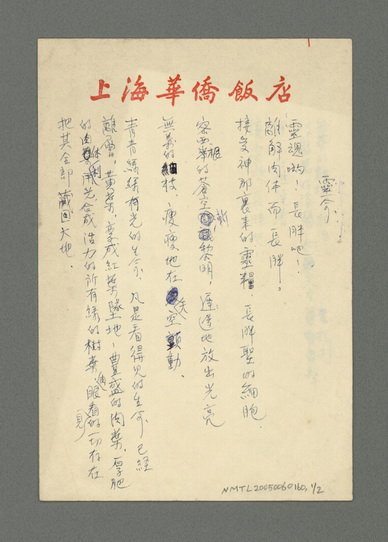 上海華僑飯店
靈命.
靈魂喲!長胖吧!
離解肉体而長胖。
接受神那裏來的靈糧 長胖聖的細胞.
客西祖的蒼空 黎明,遙遠地放出光亮
無葉的枝,瘦瘦地在天空顫動.
青青 有光的生命.凡是看得見的生命已經
離 。黃葉,變成紅葉墜地,豐盛的肉葉.厚肥
的 光合成活力的所有綠的樹葉 眼看的一切存在
把其全部藏回大地.
NMTL20050060160, 1/2